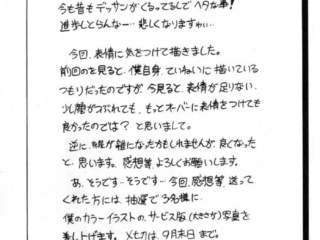 今も昔もデッサンがくるってるしでヘタな事!
進歩しとらんなー…悲しくなりますわい…
今回、表情に気をつけて描きました。
前回のを見ると、僕自身、ていねいに描いている
つもりだったのですが、今見ると、表情が足りない。
少し顔がつぶれても、もっとオーバーに表情をつけても
良かったのでは?と思いまして。
逆に、線が雑になったかもしれませんが、良くなった
と、思います。感想等、よろしくお願いします。
あ、そうです…そうです…今回、感想等、送って
くれた方には、抽選で3名様に、
僕のカラーイラストの、サービス版(大きさが)写真を
差し上げます。〆切は、9月末日まで。